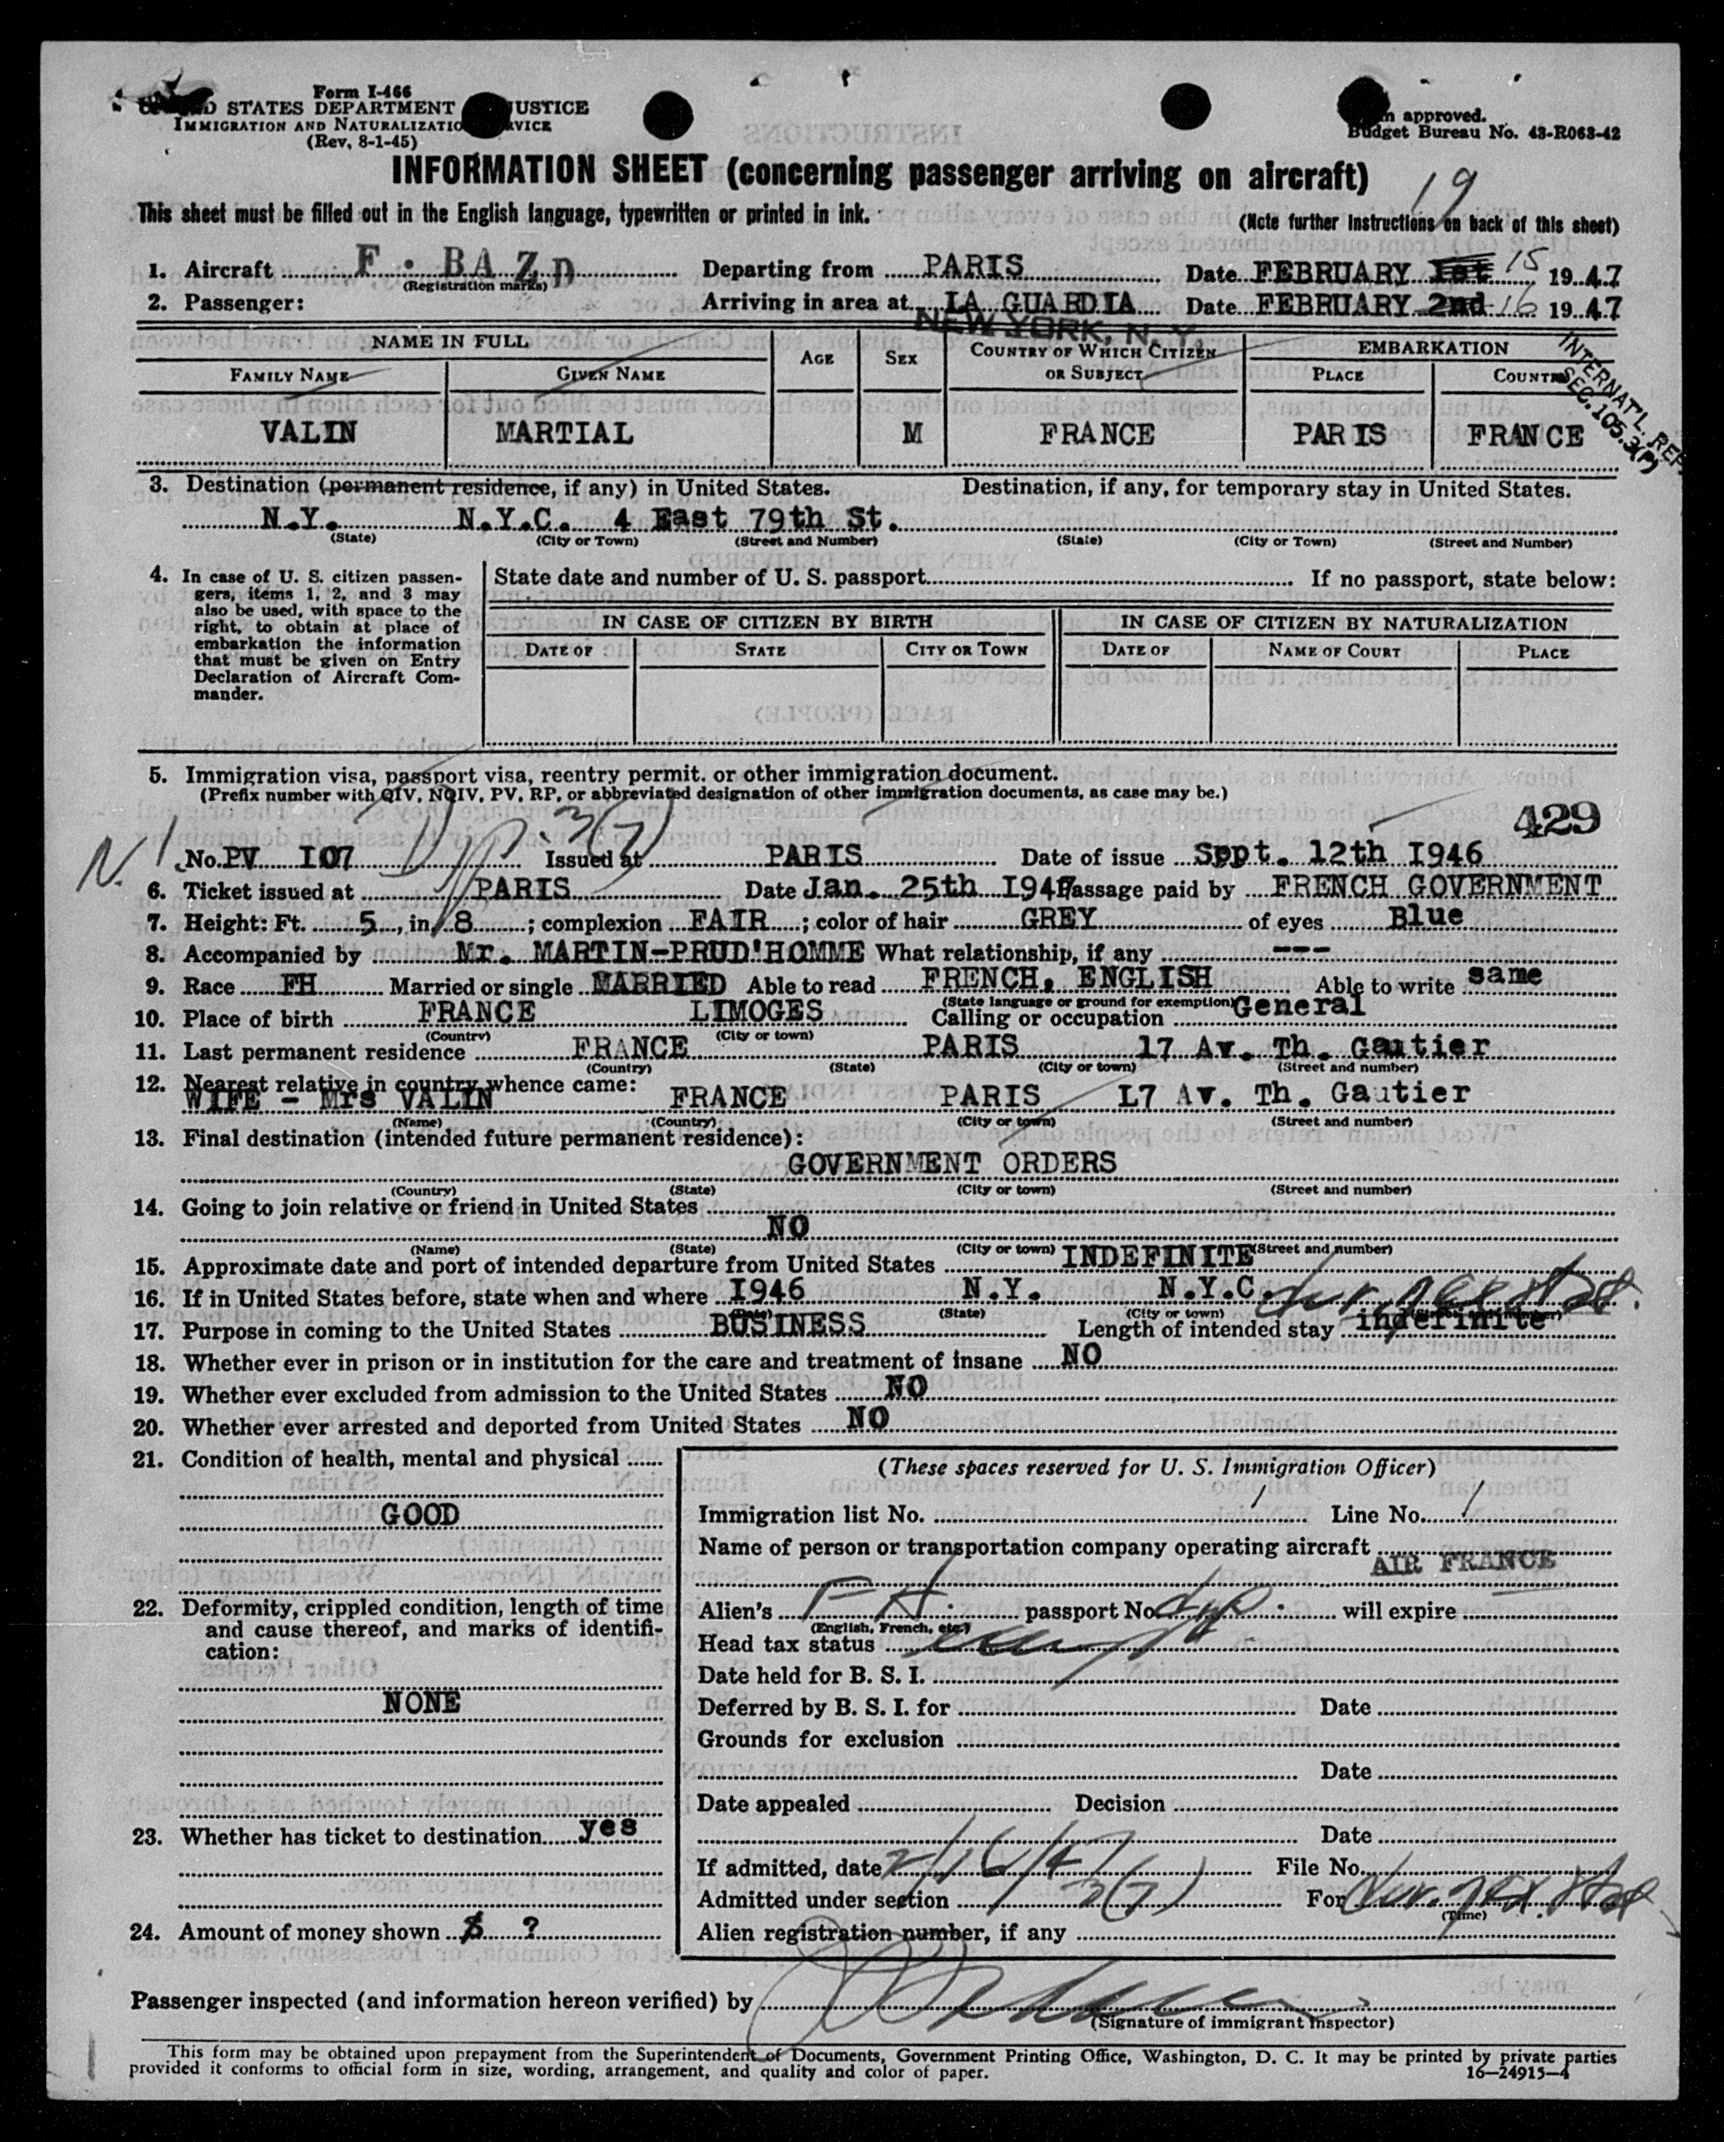 Form I-466
STATES DEPARTMENT USTICE
IMMIGRATION AND NATURALIZATIO VICE
(Rev. 8-1-45)
approved.
Budget Bureau No. 43-R063-42
INFORMATION SHEET (concerning passenger arriving on aircraft)
19
This sheet must be filled out in the English language, typewritten or printed in ink.
(Note further instructions on back of this sheet)
1. Aircraft F. BAZD Departing from PARIS Date FEBRUARY 1st 15 1947
(Registration marks)
2. Passenger: Arriving in area at LA GUARDIA Date FEBRUARY 2nd 16 1947
NEW YORK, N. Y.
NAME IN FULL AGE SEX COUNTRY OF WHICH CITIZEN OR SUBJECT EMBARKATION
FAMILY NAME GIVEN NAME PLACE COUNTRY
INTERNAT'L. REP.
SEC. 105.3(P)
VALIN MARTIAL M FRANCE PARIS FRANCE
3. Destination (permanent residence, if any) in United States. Destination, if any, for temporary stay in United States.
N.Y. N.Y.C. 4 East 79th St.
(State) (City or Town) (Street and Number) (State) (City or Town) (Street and Number)
4. In case of U. S. citizen passen-
gers, items 1, 2, and 3 may
also be used, with space to the
right, to obtain at place of
embarkation the information
that must be given on Entry
Declaration of Aircraft Com-
mander.
State date and number of U. S. passport If no passport, state below:
IN CASE OF CITIZEN BY BIRTH IN CASE OF CITIZEN BY NATURALIZATION
DATE OF STATE CITY OR TOWN DATE OF NAME OF COURT PLACE
5. Immigration visa, passport visa, reentry permit. or other immigration document.
(Prefix number with QIV, NQIV, PV, RP, or abbreviated designation of other immigration documents, as case may be.)
429
3(7)
No. PV I07 Issued at PARIS Date of issue Sppt. 12th I946
6. Ticket issued at PARIS Date Jan. 25th I947 Passage paid by FRENCH GOVERNMENT
7. Height: Ft. 5, in. 8; complexion FAIR; color of hair GREY of eyes Blue
8. Accompanied by Mr. MARTIN-PRUD'HOMME What relationship, if any ---
9. Race FH Married or single MARRIED Able to read FRENCH, ENGLISH Able to write same
(State language or ground for exemption)
10. Place of birth FRANCE LIMOGES Calling or occupation General
(Country) (City or town)
11. Last permanent residence FRANCE PARIS 17 Av. Th. Gautier
(Country) (State) (City or town) (Street and number)
12. Nearest relative in country whence came:
WIFE - Mrs VALIN FRANCE PARIS L7 Av. Th. Gautier
(Name) (Country) (City or town) (Street and number)
13. Final destination (intended future permanent residence):
GOVERNMENT ORDERS
(Country) (State) (City or town) (Street and number)
14. Going to join relative or friend in United States
NO
(Name) (State) (City or town) (Street and number)
15. Approximate date and port of intended departure from United States INDEFINITE
16. If in United States before, state when and where I946 N.Y. N.Y.C.
(Date) (State) (City or town)
17. Purpose in coming to the United States BUSINESS Length of intended stay indefinite
18. Whether ever in prison or in institution for the care and treatment of insane NO
19. Whether ever excluded from admission to the United States NO
20. Whether ever arrested and deported from United States NO
21. Condition of health, mental and physical
GOOD
22. Deformity, crippled condition, length of time
and cause thereof, and marks of identifi-
cation:
NONE
23. Whether has ticket to destination yes
24. Amount of money shown $ ?
(These spaces reserved for U. S. Immigration Officer)
Immigration list No. 1 Line No. 1
Name of person or transportation company operating aircraft
AIR FRANCE
Alien's F H. passport No. dip. will expire
(English, French, etc.)
Head tax status
Date held for B. S. I.
Deferred by B. S. I. for Date
Grounds for exclusion
Date
Date appealed Decision
Date
If admitted, date 2/16/47 File No.
Admitted under section 3(7) For
(Time)
Alien registration number, if any
Passenger inspected (and information hereon verified) by
(Signature of immigrant inspector)
This form may be obtained upon prepayment from the Superintendent of Documents, Government Printing Office, Washington, D. C. It may be printed by private parties
provided it conforms to official form in size, wording, arrangement, and quality and color of paper. 16—24915-4